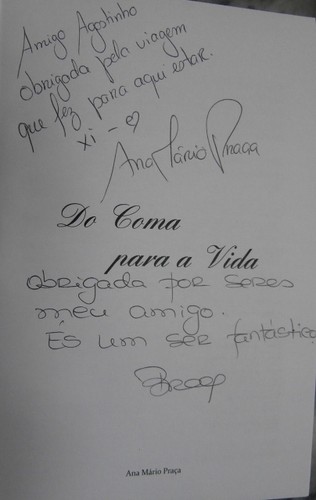 Amigo Agostinho
obrigada pela viagem
que fez para aqui estar.
xi - ♡
Ana Mário Praça
Do Coma
para a Vida
Obrigada por seres
meu amigo.
És um ser fantástico
Ana Mário Praça